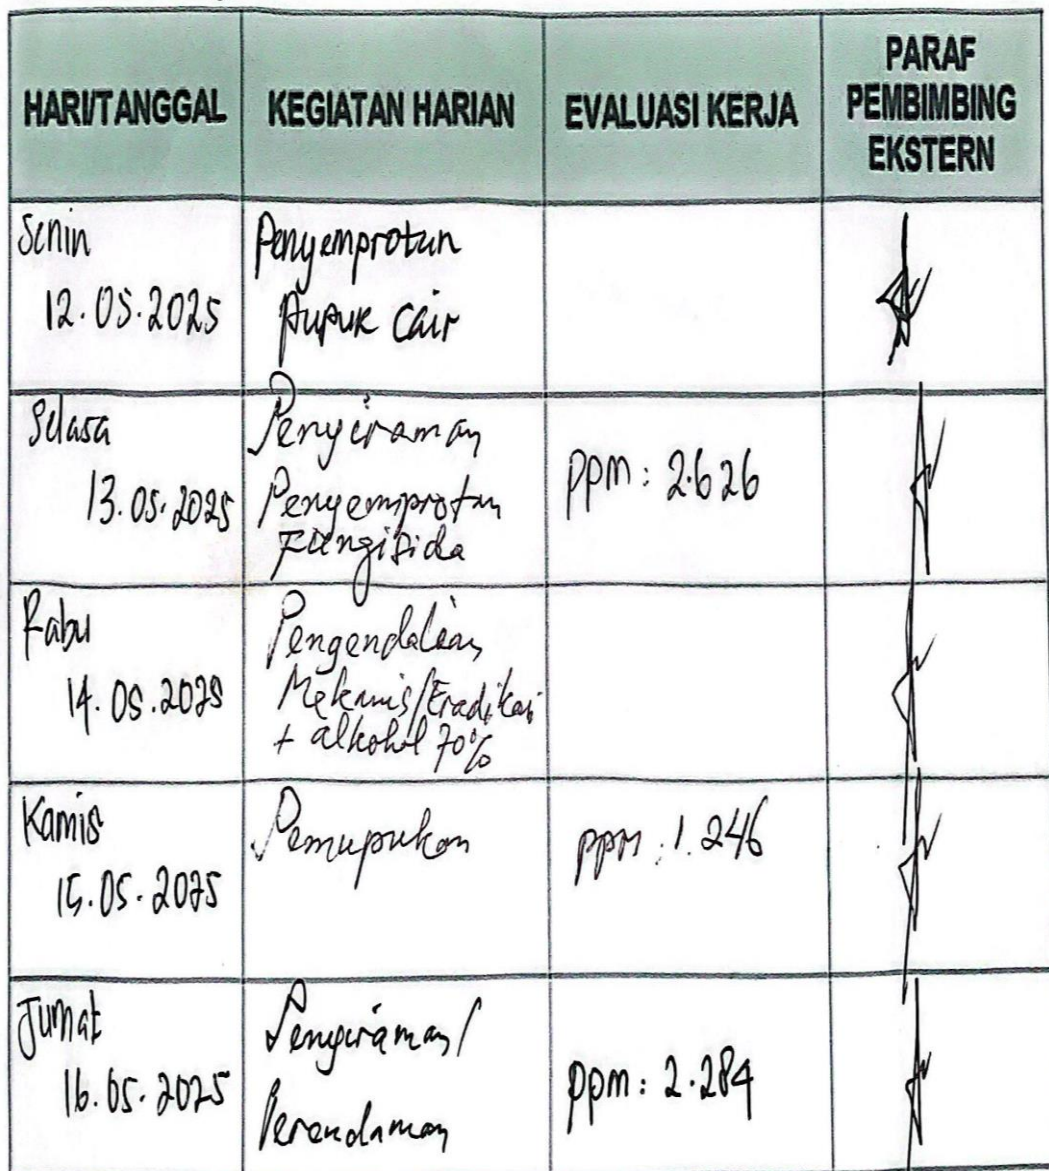 HARI/TANGGAL KEGIATAN HARIAN EVALUASI KERJA PARAF PEMBIMBING EKSTERN
Senin
12.05.2025
Penyemprotan
Pupuk Cair
Selasa
13.05.2025
Penyiraman
Penyemprotan
Fungisida
ppm: 2.626
Rabu
14.05.2025
Pengendalian
Mekanis/Eradikasi
+ alkohol 70%
Kamis
15.05.2025
Pemupukan
ppm: 1.246
Jumat
16.05.2025
Penyiraman/
Perendaman
ppm: 2.284